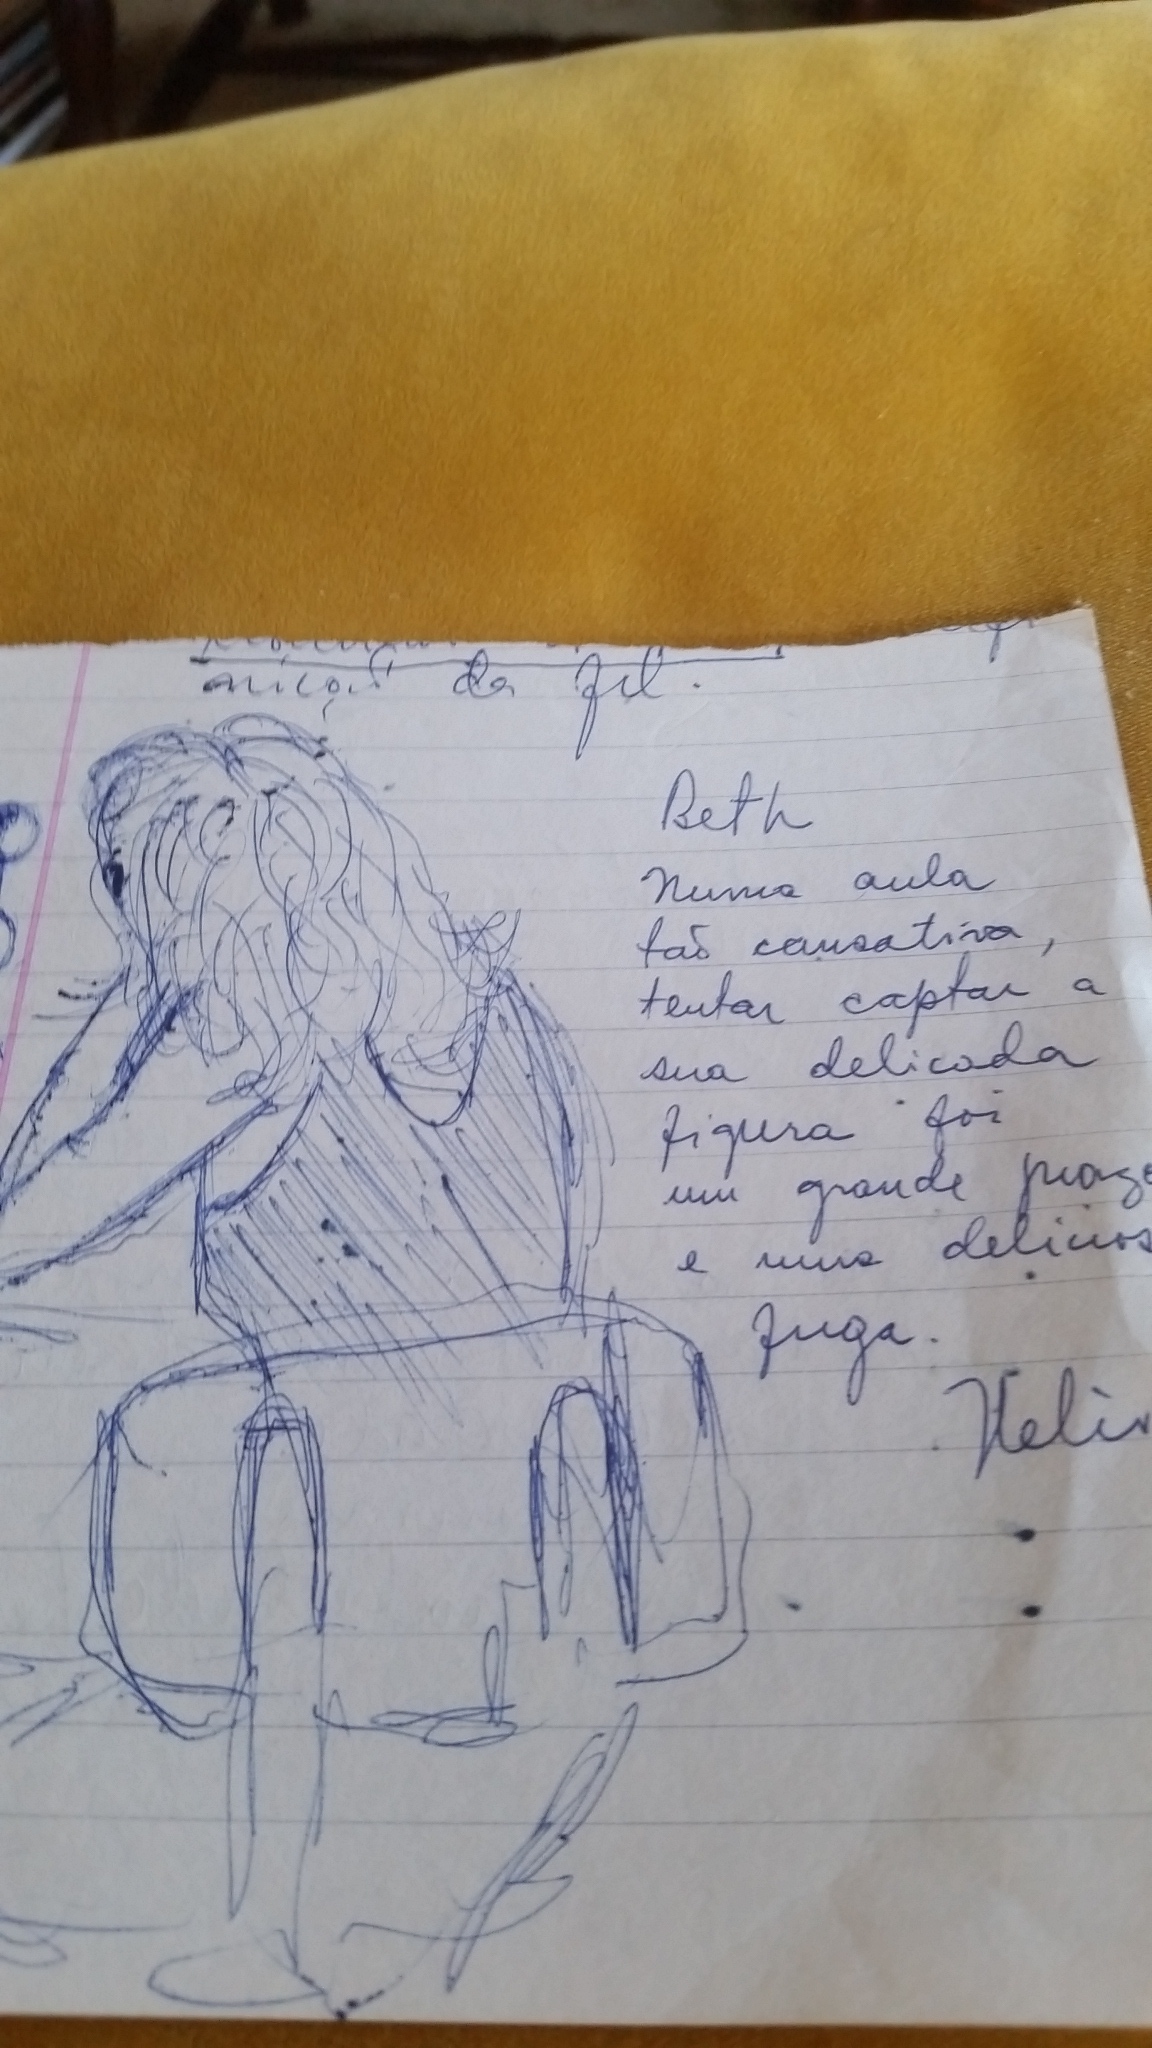 da fil.
Beth
Numa aula
tão cansativa,
tentar captar a
sua delicada
figura foi
um grande praze
e uma delicios
fuga.